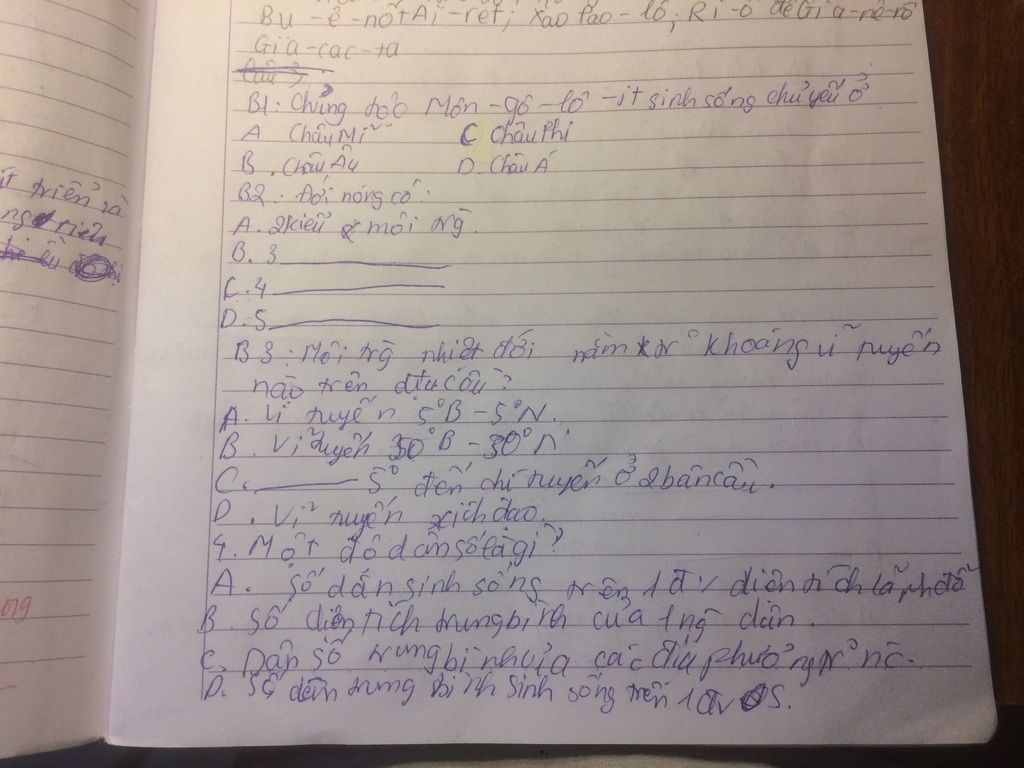 Bu-ê-nốt Ai-ret, Xao Pao-lô, Ri-ô đê Gia-nê-rô
Gia-cac-ta
Câu 3
B1: Chủng tộc Môn-gô-lô-it sinh sống chủ yếu ở
A. Châu Mĩ C Châu Phi
B. Châu Âu D. Châu Á
B2: Đới nóng có:
A. 2 kiểu môi trg
B. 3
C. 4
D. 5
B3: Môi trg nhiệt đới nằm từ khoảng vĩ tuyến
nào trên địa cầu?
A. Vĩ tuyến 5°B - 5°N.
B. Vĩ tuyến 30°B - 30°N
C. 5° đến chí tuyến ở 2 bán cầu.
D. Vĩ tuyến xích đạo.
4. Mật độ dân số là gì?
A. Số dân sinh sống trên 1 đv diện tích lãnh thổ
B. Số diện tích trung bình của 1 ng dân.
C. Dân số trung bình của các địa phương trg nc.
D. Số dân trung bình sinh sống trên 1 đv S.
ít triển và